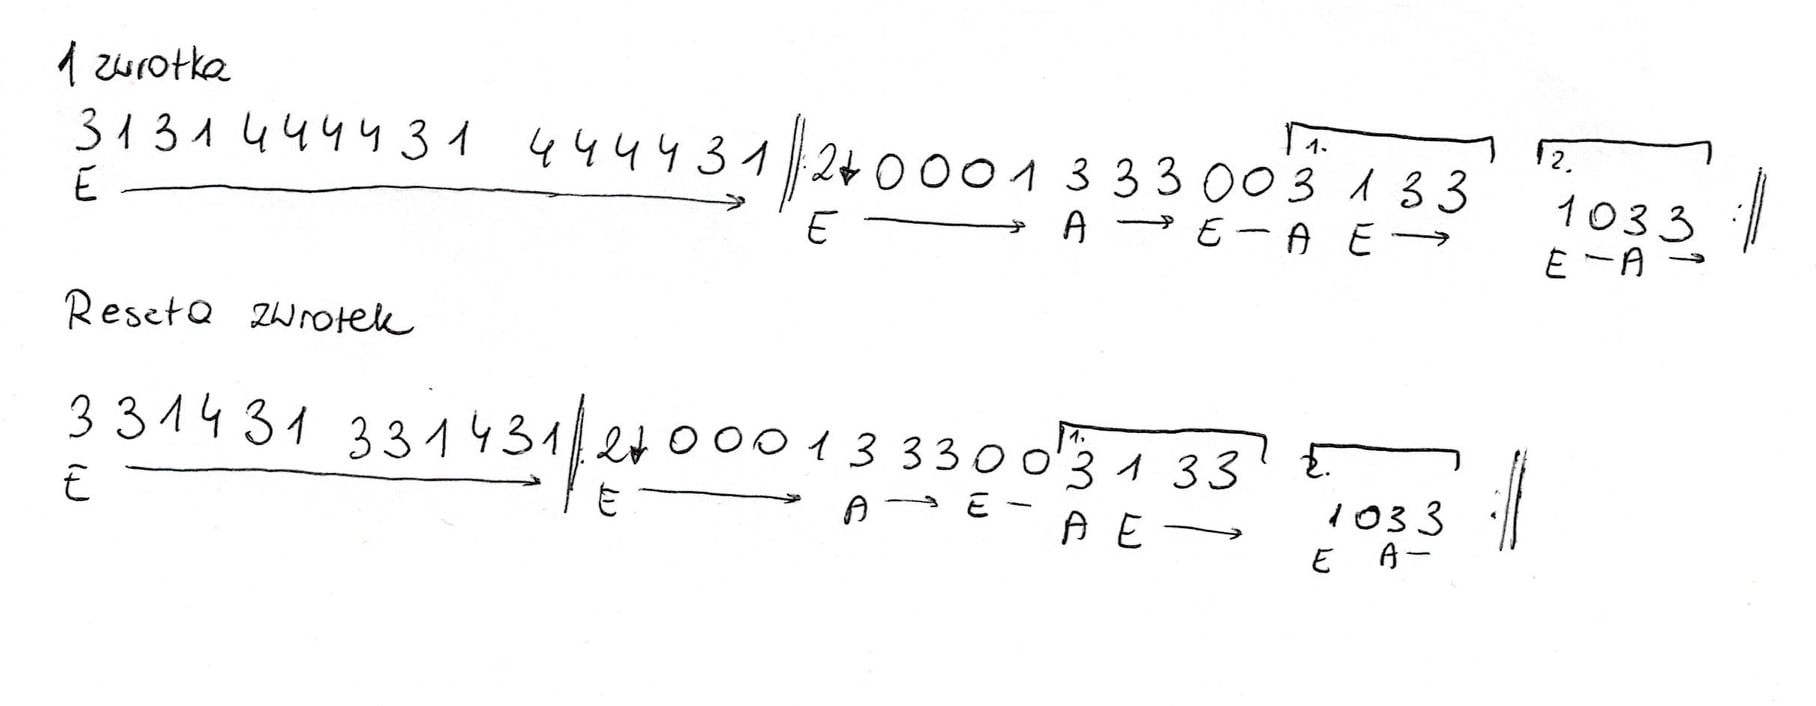 1 zwrotka
3 1 3 1 4 4 4 4 3 1 4 4 4 4 3 1 ‖: 2↓ 0 0 0 1 3 3 3 0 0 1. 3 1 3 3 2. 1 0 3 3 :‖
E → E → A → E – A E → E – A →
Reszta zwrotek
3 3 1 4 3 1 3 3 1 4 3 1 ‖: 2↓ 0 0 0 1 3 3 3 0 0 1. 3 1 3 3 2. 1 0 3 3 :‖
E → E → A → E – A E → E A –